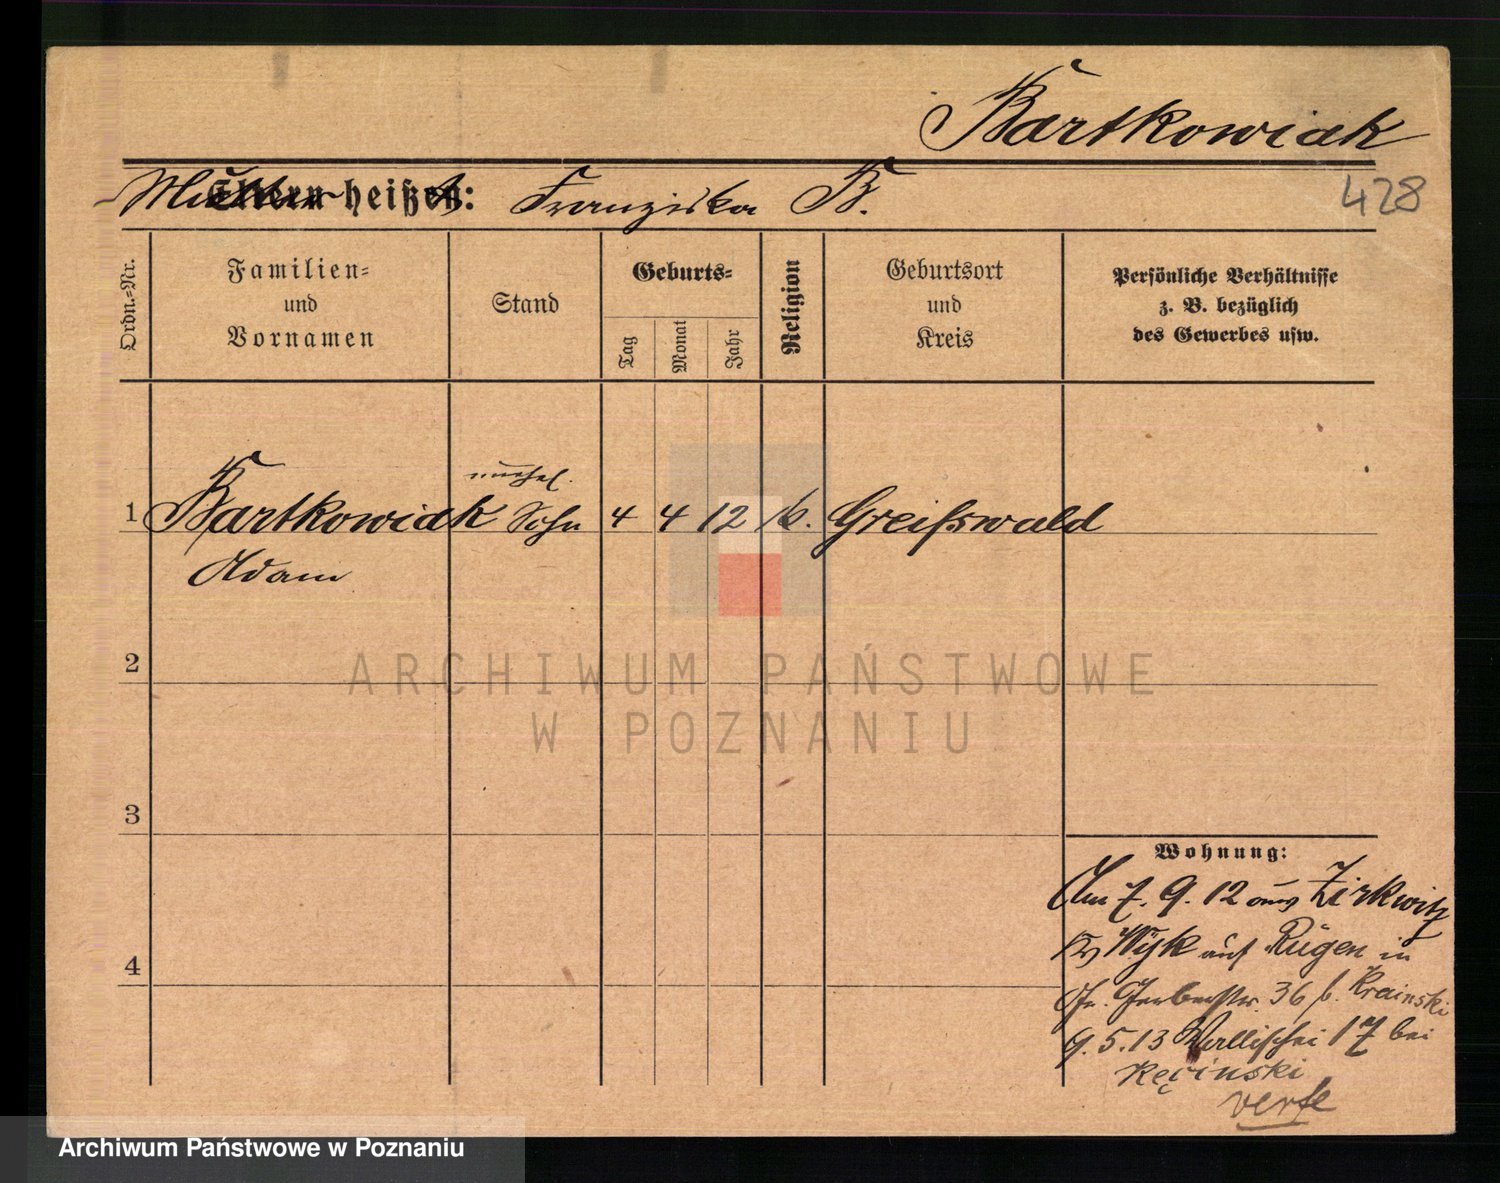 Bartkowiak
Mutter heißt: Franziska B.
428
Ordn.-Nr.
Familien-
und
Vornamen
Stand
Geburts-
Tag
Monat
Jahr
Religion
Geburtsort
und
Kreis
Persönliche Verhältnisse
z. B. bezüglich
des Gewerbes usw.
unehel.
1 Bartkowiak Sohn 4 4 12 k. Greifswald
Adam
2
3
4
Wohnung:
Am 7. 9. 12 aus Zirkwitz
Wyk auf Rügen in
Gerberstr. 36 b. Krainski
9.5.13 Wallischei 17 bei
Kęcinski
ARCHIWUM PAŃSTWOWE
W POZNANIU
Archiwum Państwowe w Poznaniu